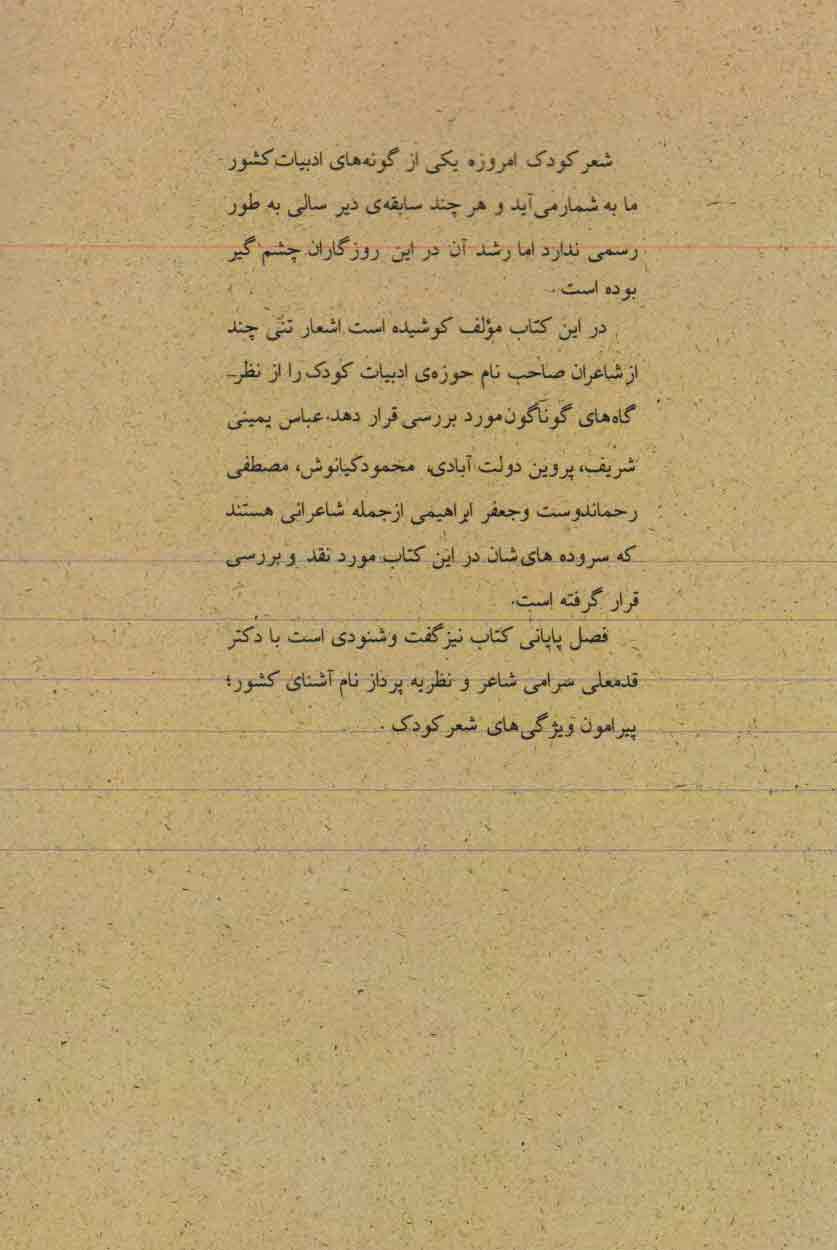 شعر کودک امروزه یکی از گونه‌های ادبیات کشور
ما به شمار می‌آید و هر چند سابقه‌ی دیر سالی به طور
رسمی ندارد اما رشد آن در این روزگاران چشم گیر
بوده است.
در این کتاب مؤلف کوشیده است اشعار تنی چند
از شاعران صاحب نام حوزه‌ی ادبیات کودک را از نظر-
گاه‌های گوناگون مورد بررسی قرار دهد. عباس یمینی
شریف، پروین دولت آبادی، محمود کیانوش، مصطفی
رحماندوست و جعفر ابراهیمی از جمله شاعرانی هستند
که سروده های‌شان در این کتاب مورد نقد و بررسی
قرار گرفته است.
فصل پایانی کتاب نیز گفت وشنودی است با دکتر
قدمعلی سرامی شاعر و نظریه پرداز نام آشنای کشور؛
پیرامون ویژگی‌های شعر کودک.